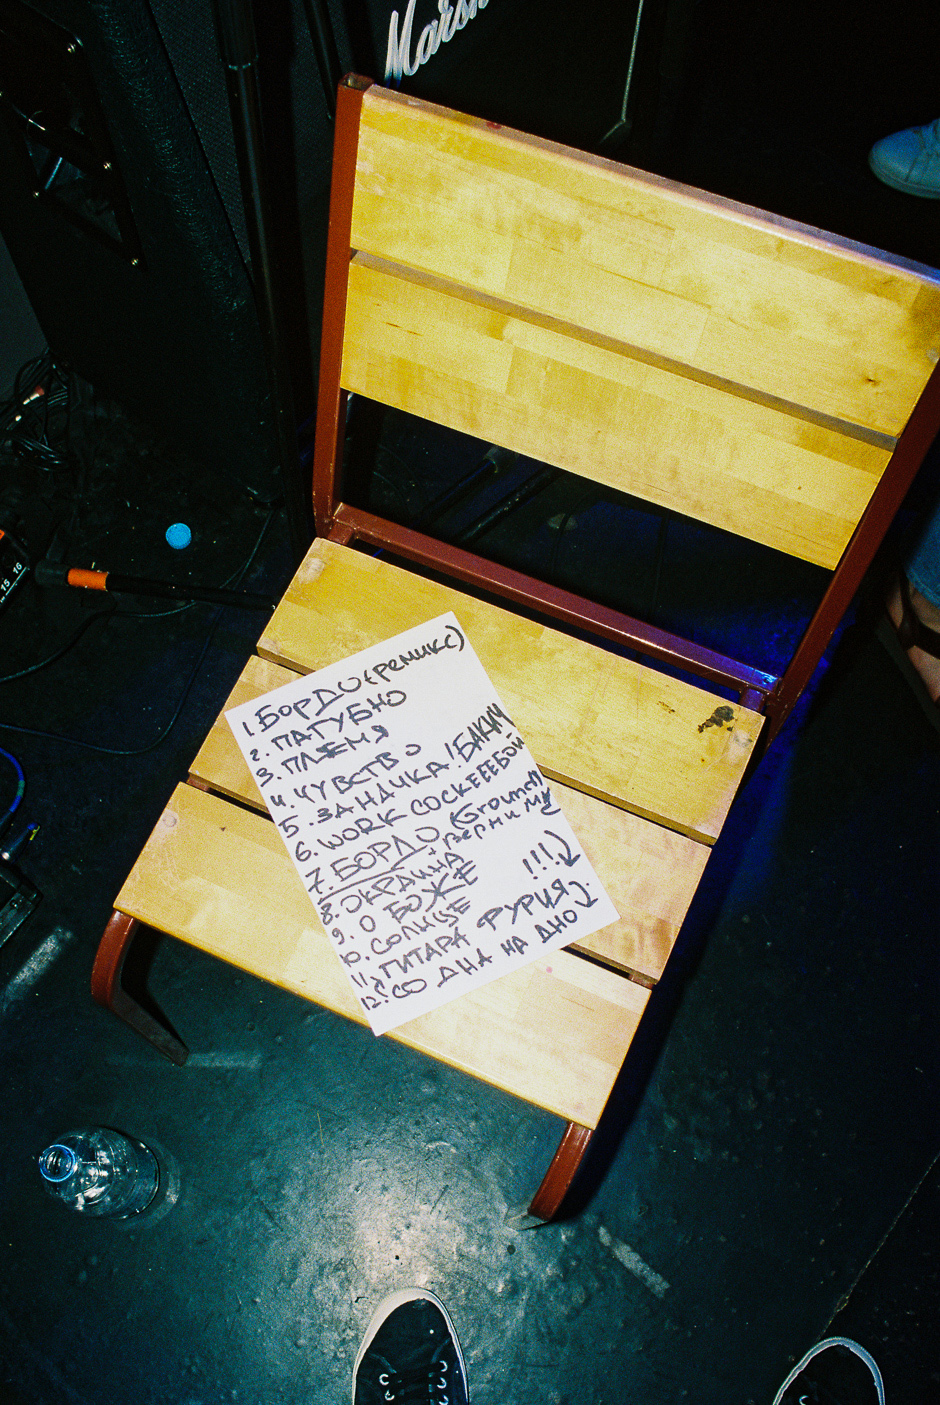 Marsh
15 16
1. БОРДО (РЕМИКС)
2. ПАГУБНО
3. ПЛЕМЯ
4. ЧУВСТВО
5. ЗАНДИКА! БАКИЧ
6. WORK СОСКЕЕЕБОЙ
7. БОРДО (Ground)
+ ВЕРНИ МНЕ
8. ОКРАИНА
9. О БОЖЕ
10. СОЛНЦЕ !!!
11. ГИТАРА ФУРИЯ
12. СО ДНА НА ДНО